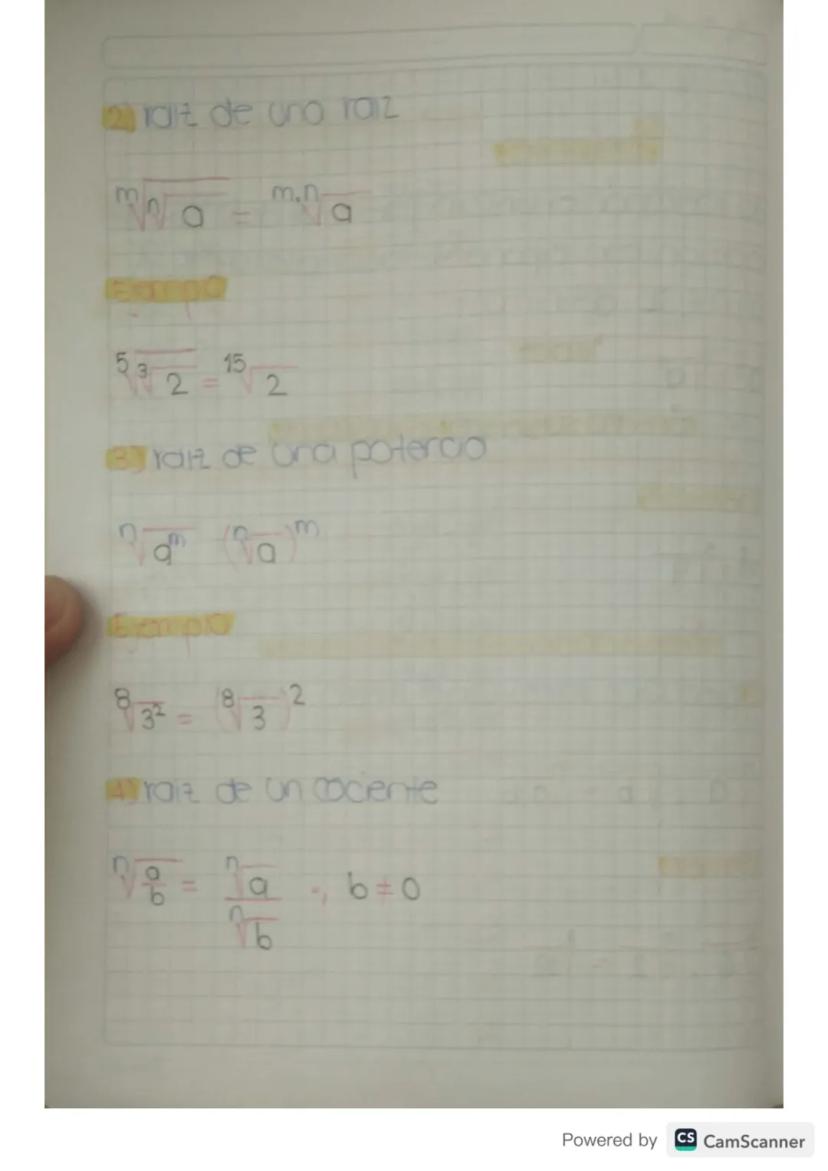 2) raiz de una raiz
ᵐ√ⁿ√a = ᵐ·ⁿ√a
Ejemplo
⁵√³√2 = ¹⁵√2
3) raiz de una potencia
ⁿ√aᵐ (ⁿ√a)ᵐ
Ejemplo
⁸√3² = (⁸√3)²
4) raiz de un cociente
ⁿ√a/b = ⁿ√a / ⁿ√b ., b ≠ 0
Powered by CS CamScanner